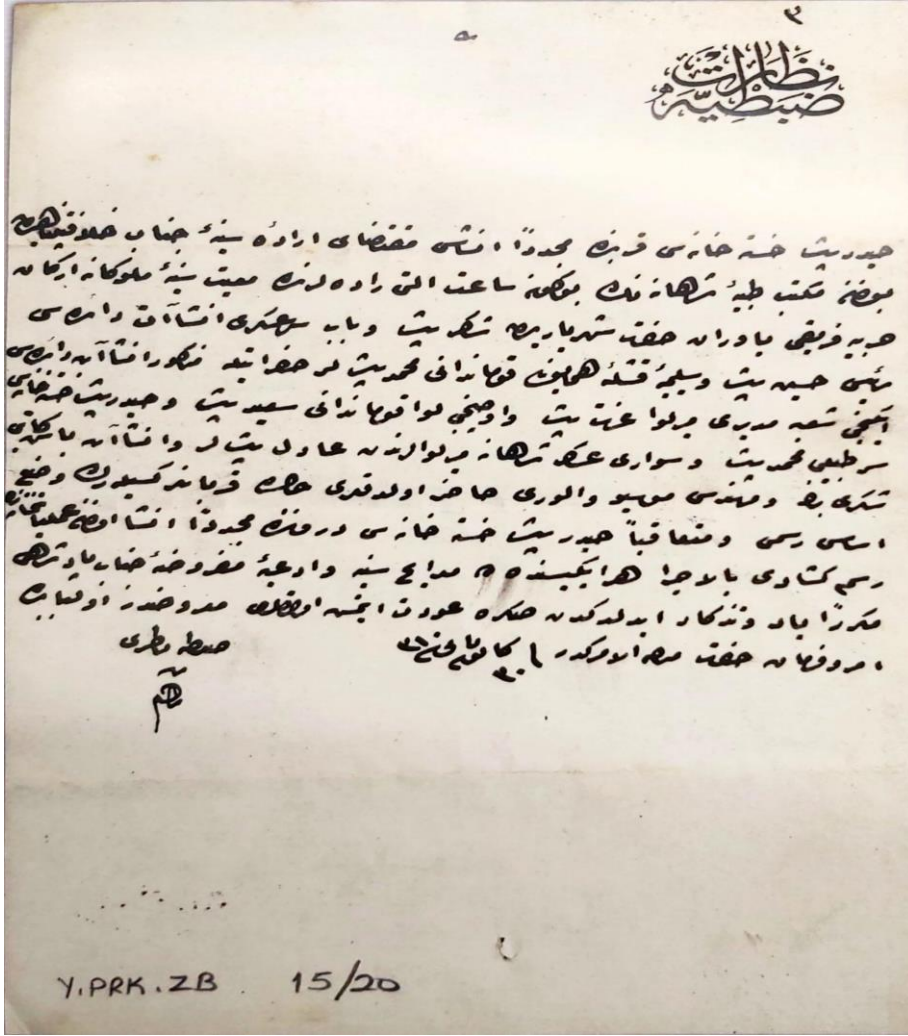 ٣
نظارت
ضبطيه
حيدر پاشا خسته خانه سی قربنده مجدداً انشاسی مقتضای اراده سنیهٔ جناب خلافتپناهیدن
بولنان مكتب طبیهٔ شاهانه نك بوكون ساعت التی راده لرنده معیت سنیهٔ ملوكانه اركان
حربیه فریقی یاوران حضرت شهریاریدن شاكر پاشا و باب سرعسكری انشاآت دائره سی
رئیسی حسین پاشا و سلیمیه قشلهٔ همایون قوماندانی محمد پاشا لر حضراتیله مذكور انشاآت دائره سی
ایكنجی شعبه مدیری میرلوا عزت پاشا و اوچنجی لوا قوماندانی سعید پاشا و حیدر پاشا خسته خانه سی
سر طبیبی محمد پاشا و سواری عساكر شاهانه میرلوالرندن عادل پاشا لر و انشاآت باش كاتبی
شكری بك و مهندسی موسیو والوری حاضر اولدقلری حالده قربانلر كسیلرك وضع
اساس رسمی و متعاقباً حیدر پاشا خسته خانه سی دروننده مجدداً انشا اولنان عملیاتخانه نك
رسم كشادی بالاجرا هر ایكیسنده ده مدایح سنیه و ادعیهٔ مفروضهٔ جناب پادشاهی
مكرراً یاد و تذكار ایدلدكدن صكره عودت ایتمش اولدقلری معروضدر اولبابده
امر و فرمان حضرت من له الامركدر فی ٣٠ كانون ثانی سنه ٣١٠
ضبطیه ناظری
Y.PRK.ZB 15/20